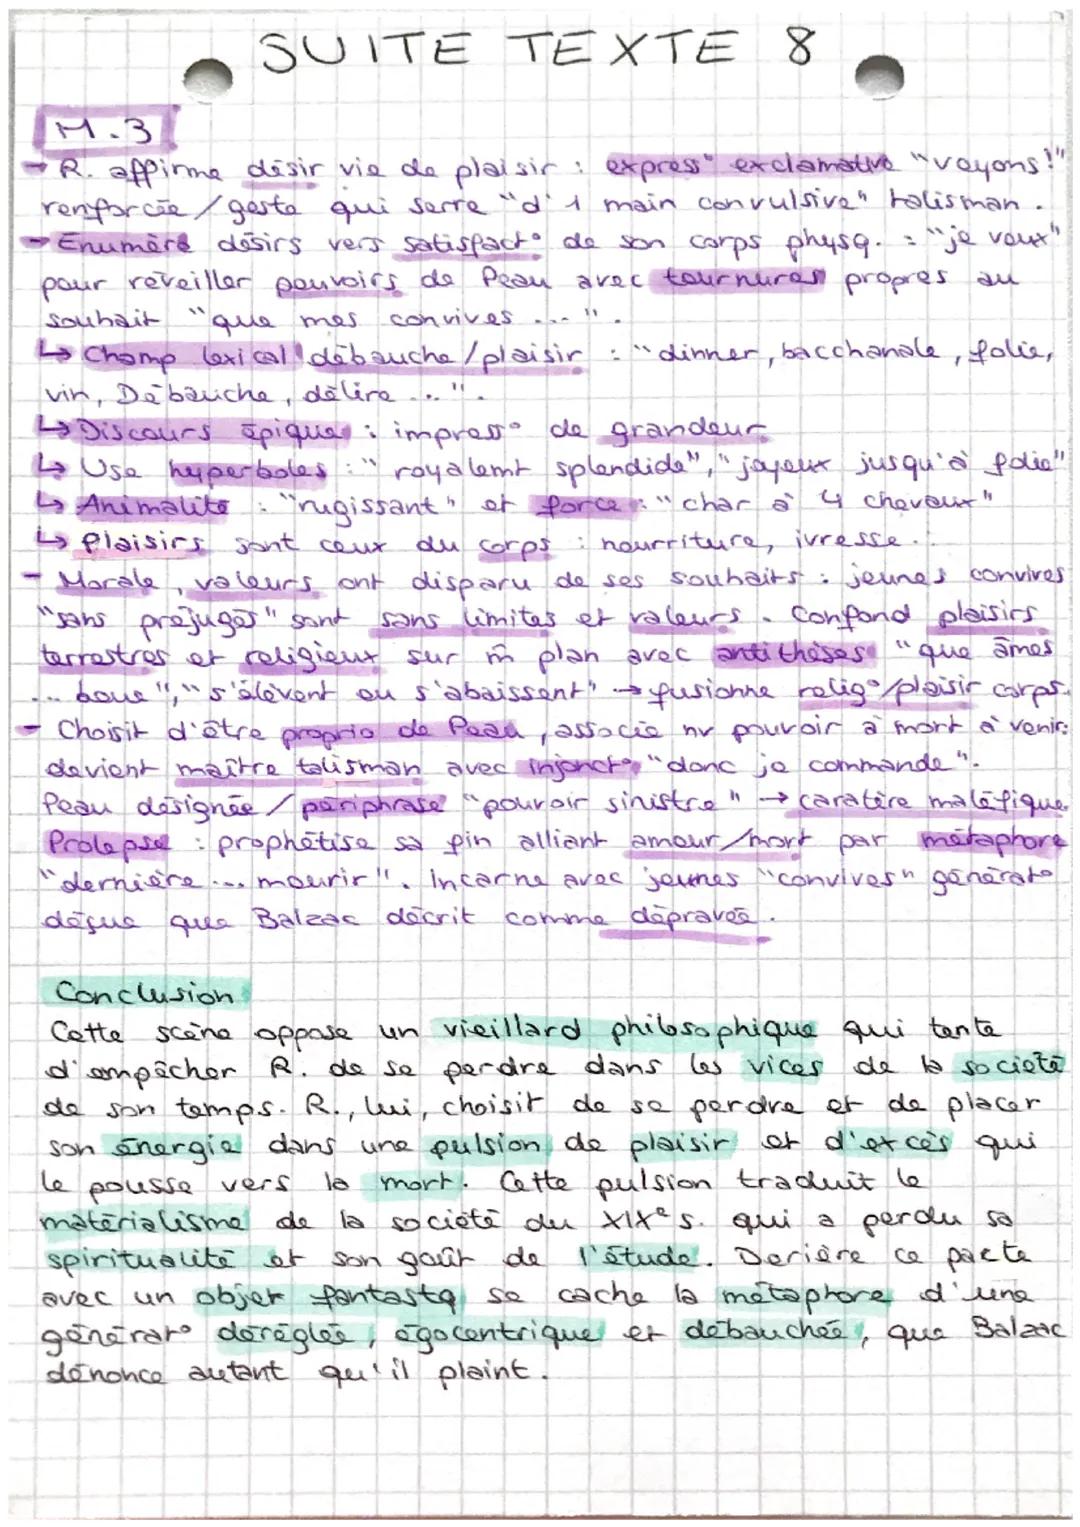 SUITE TEXTE 8
M.3
- R. affirme désir vie de plaisir : express° exclamative "voyons!"
renforcée / geste qui serre "d'1 main convulsive" talisman.
- Enumère désirs vers satisfact° de son corps physq. : "je veux"
pour réveiller pouvoirs de Peau avec tournures propres au
souhait "que mes convives ...".
↳ Champ lexical débauche/plaisir : "dinner, bacchanale, folie,
vin, Débauche, délire ...".
↳ Discours épique : impress° de grandeur
↳ Use hyperboles : "royalemt splendide", "joyeux jusqu'à folie"
↳ Animalité : "rugissant" et force : "char à 4 chevaux"
↳ Plaisirs sont ceux du corps : nourriture, ivresse...
- Morale, valeurs ont disparu de ses souhaits : jeunes convives
"sans préjugés" sont sans limites et valeurs. Confond plaisirs
terrestres et religieux sur m̂ plan avec antithèses "que âmes
... boue", "s'élèvent ou s'abaissent" → fusionne relig°/plaisir corps.
- Choisit d'être proprio de Peau, associe nv pouvoir à mort à venir:
devient maître talisman avec injonct° "donc je commande".
Peau désignée / périphrase "pouvoir sinistre" → caratère maléfique.
Prolepse : prophétise sa fin alliant amour/mort par métaphore
"dernière ... mourir". Incarne avec jeunes "convives" générat°
déçue que Balzac décrit comme dépravée.
Conclusion
Cette scène oppose un vieillard philosophique qui tente
d'empêcher R. de se perdre dans les vices de la société
de son temps. R., lui, choisit de se perdre et de placer
son énergie dans une pulsion de plaisir et d'excès qui
le pousse vers la mort. Cette pulsion traduit le
matérialisme de la société du XIXe s. qui a perdu sa
spiritualité et son goût de l'étude. Derière ce pacte
avec un objet fantastq se cache la métaphore d'une
générat° déréglée, égocentrique et débauchée, que Balzac
dénonce autant qu'il plaint.